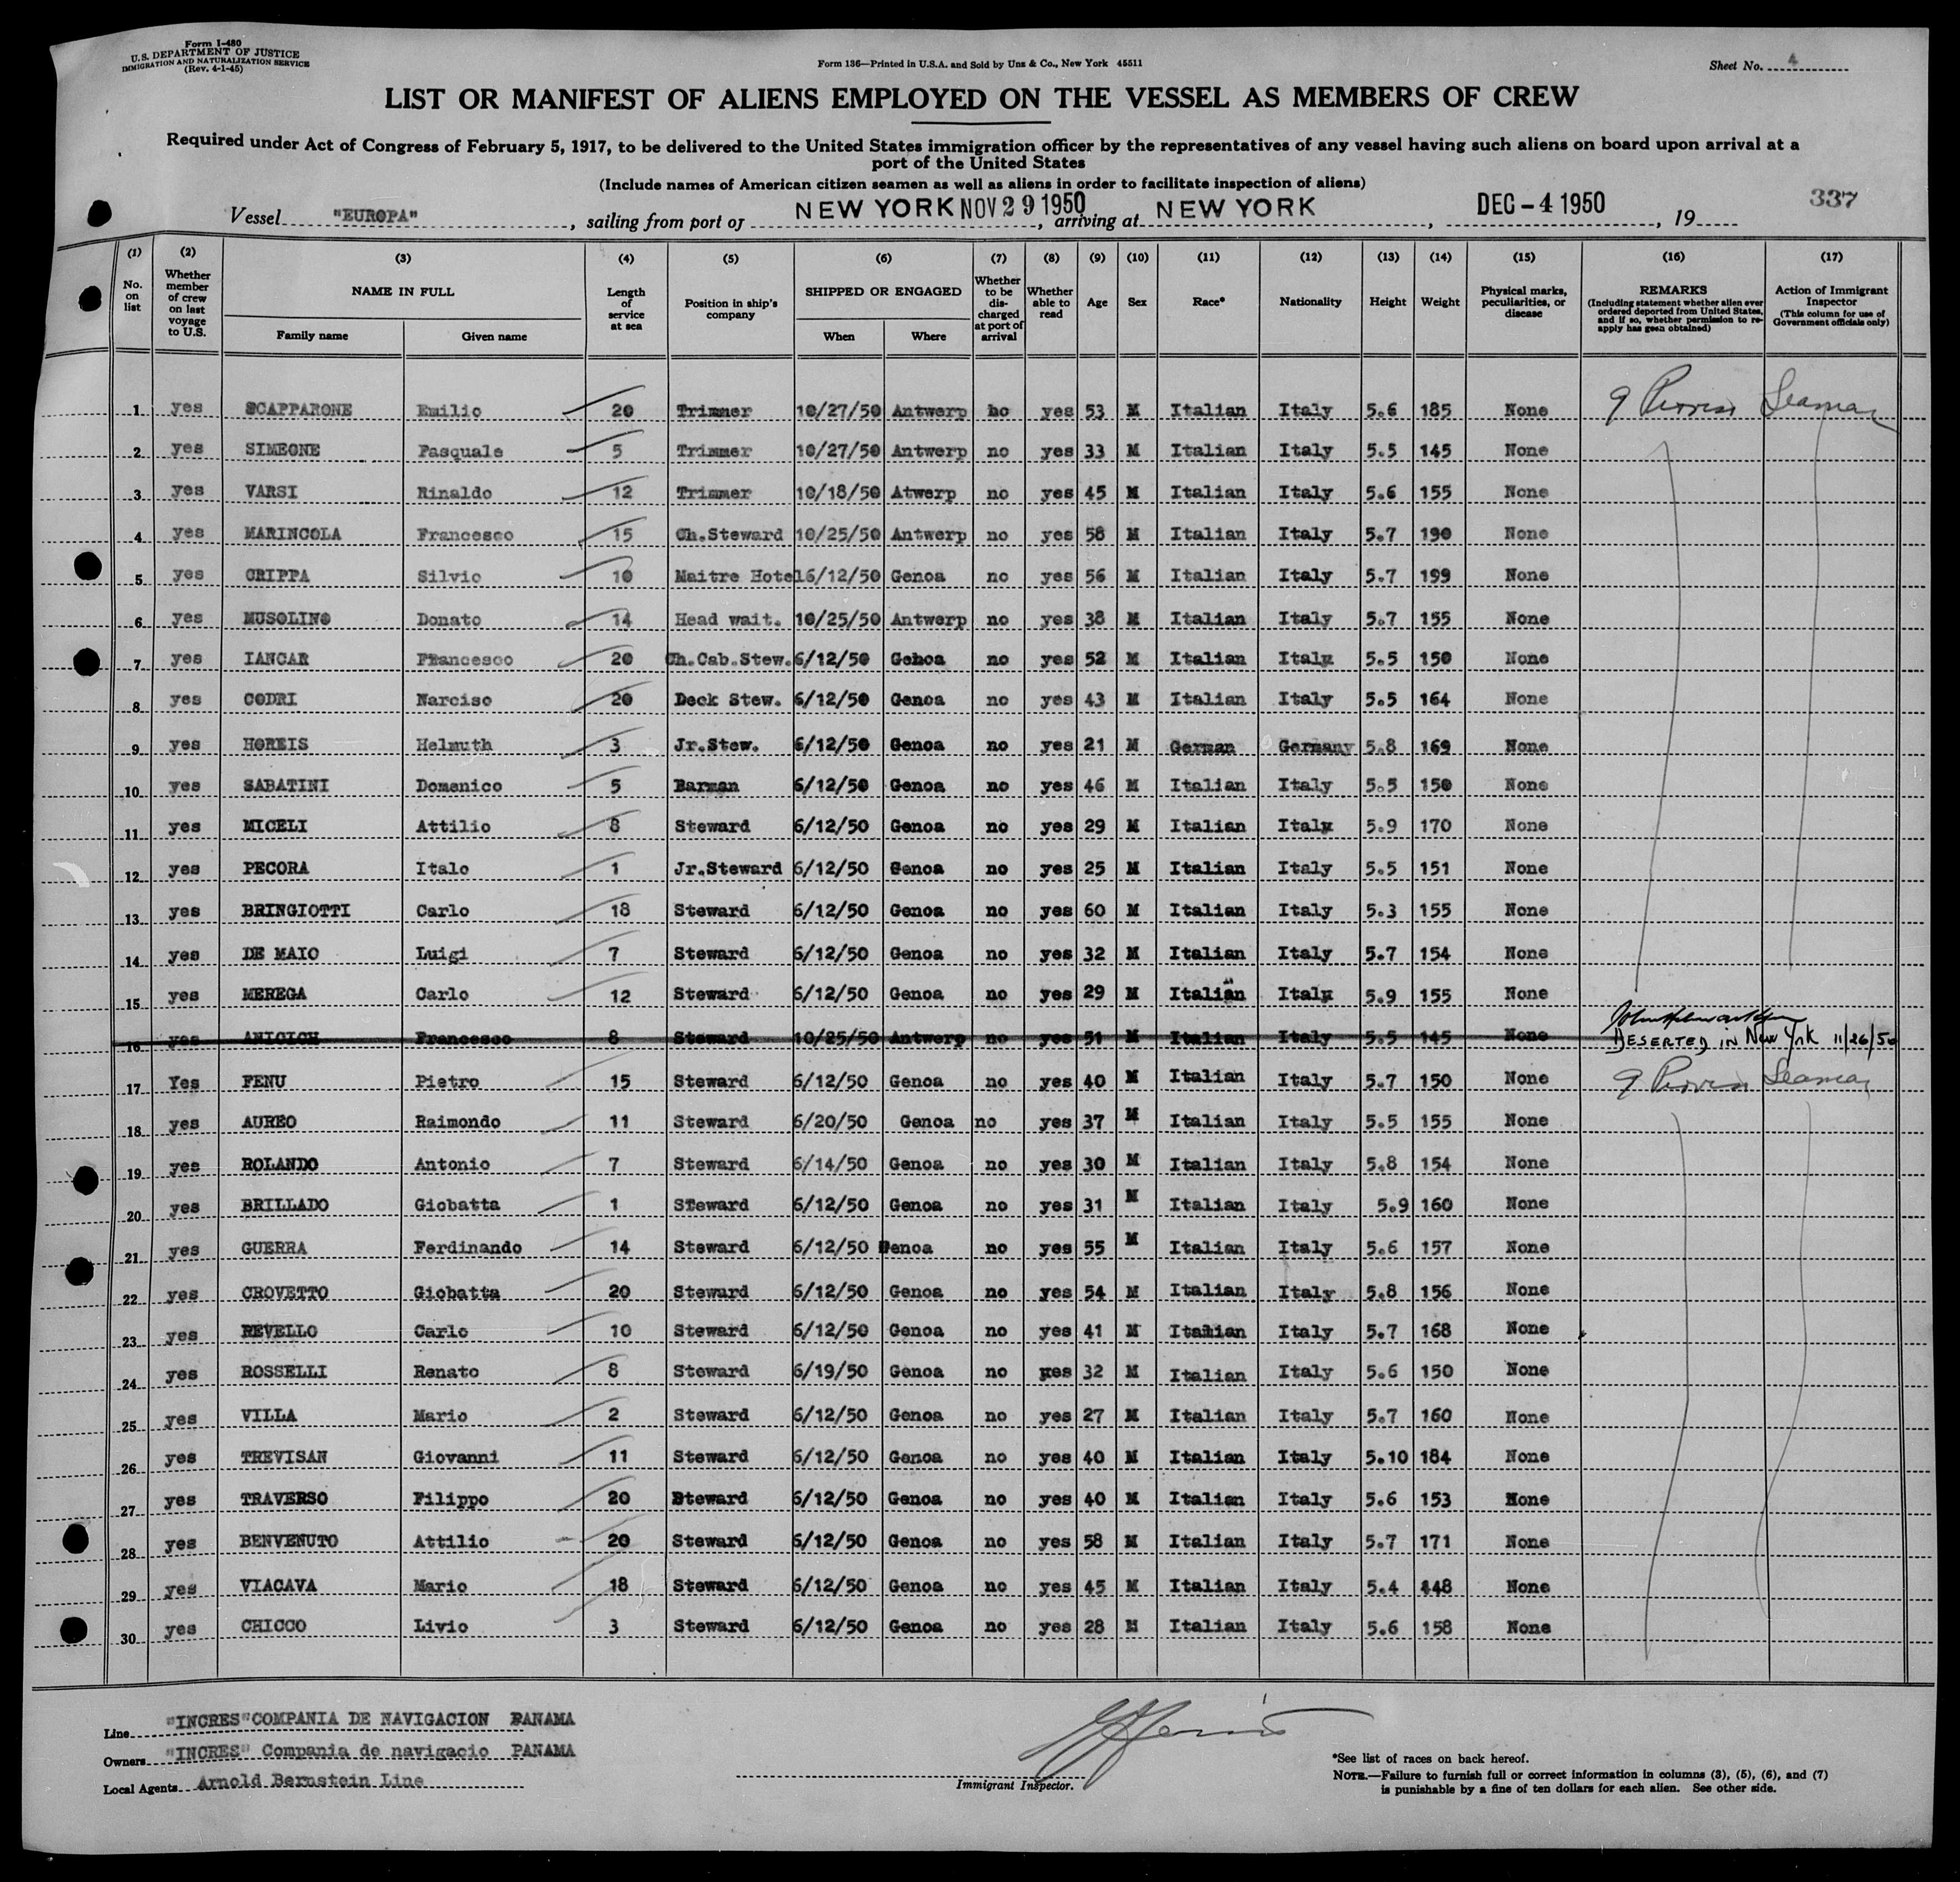 Form I-480
U.S. DEPARTMENT OF JUSTICE
IMMIGRATION AND NATURALIZATION SERVICE
(Rev. 4-1-45)
Form 136—Printed in U.S.A. and Sold by Unz & Co., New York 45511
Sheet No. 4
LIST OR MANIFEST OF ALIENS EMPLOYED ON THE VESSEL AS MEMBERS OF CREW
Required under Act of Congress of February 5, 1917, to be delivered to the United States immigration officer by the representatives of any vessel having such aliens on board upon arrival at a
port of the United States
(Include names of American citizen seamen as well as aliens in order to facilitate inspection of aliens)
337
Vessel "EUROPA", sailing from port of NEW YORK NOV 29 1950, arriving at NEW YORK, DEC - 4 1950, 19
(1) (2) (3) (4) (5) (6) (7) (8) (9) (10) (11) (12) (13) (14) (15) (16) (17)
No. on list
Whether member of crew on last voyage to U.S.
NAME IN FULL
Family name Given name
Length of service at sea
Position in ship's company
SHIPPED OR ENGAGED
When Where
Whether to be discharged at port of arrival
Whether able to read
Age
Sex
Race*
Nationality
Height
Weight
Physical marks, peculiarities, or disease
REMARKS
(Including statement whether alien ever ordered deported from United States, and if so, whether permission to re-apply has geen obtained)
Action of Immigrant Inspector
(This column for use of Government officials only)
1 yes SCAPPARONE Emilio 20 Trimmer 10/27/50 Antwerp ho yes 53 M Italian Italy 5.6 185 None Seaman
2 yes SIMEONE Pasquale 5 Trimmer 10/27/50 Antwerp no yes 33 M Italian Italy 5.5 145 None
3 yes VARSI Rinaldo 12 Trimmer 10/18/50 Atwerp no yes 45 M Italian Italy 5.6 155 None
4 yes MARINCOLA Francesco 15 Ch.Steward 10/25/50 Antwerp no yes 58 M Italian Italy 5.7 190 None
5 yes CRIPPA Silvio 10 Maitre Hotel 6/12/50 Genoa no yes 56 M Italian Italy 5.7 199 None
6 yes MUSOLINO Donato 14 Head wait. 10/25/50 Antwerp no yes 38 M Italian Italy 5.7 155 None
7 yes IANCAR Francesco 20 Ch.Cab.Stew. 6/12/50 Gehoa no yes 52 M Italian Italy 5.5 150 None
8 yes CODRI Narciso 20 Deck Stew. 6/12/50 Genoa no yes 43 M Italian Italy 5.5 164 None
9 yes HOREIS Helmuth 3 Jr.Stew. 6/12/50 Genoa no yes 21 M German Germany 5.8 169 None
10 yes SABATINI Domenico 5 Barman 6/12/50 Genoa no yes 46 M Italian Italy 5.5 150 None
11 yes MICELI Attilio 8 Steward 6/12/50 Genoa no yes 29 M Italian Italy 5.9 170 None
12 yes PECORA Italo 1 Jr.Steward 6/12/50 Genoa no yes 25 M Italian Italy 5.5 151 None
13 yes BRINGIOTTI Carlo 18 Steward 6/12/50 Genoa no yes 60 M Italian Italy 5.3 155 None
14 yes DE MAIO Luigi 7 Steward 6/12/50 Genoa no yes 32 M Italian Italy 5.7 154 None
15 yes MEREGA Carlo 12 Steward 6/12/50 Genoa no yes 29 M Italian Italy 5.9 155 None
16 yes ANICICH Francesco 8 Steward 10/25/50 Antwerp no yes 51 M Italian Italy 5.5 145 None DESERTED IN New York 11/26/50
17 Yes FENU Pietro 15 Steward 6/12/50 Genoa no yes 40 M Italian Italy 5.7 150 None Seaman
18 yes AUREO Raimondo 11 Steward 6/20/50 Genoa no yes 37 M Italian Italy 5.5 155 None
19 yes ROLANDO Antonio 7 Steward 6/14/50 Genoa no yes 30 M Italian Italy 5.8 154 None
20 yes BRILLADO Giobatta 1 STeward 6/12/50 Genoa no yes 31 M Italian Italy 5.9 160 None
21 yes GUERRA Ferdinando 14 Steward 6/12/50 Genoa no yes 55 M Italian Italy 5.6 157 None
22 yes CROVETTO Giobatta 20 Steward 6/12/50 Genoa no yes 54 M Italian Italy 5.8 156 None
23 yes REVELLO Carlo 10 Steward 6/12/50 Genoa no yes 41 M Italian Italy 5.7 168 None
24 yes ROSSELLI Renato 8 Steward 6/19/50 Genoa no yes 32 M Italian Italy 5.6 150 None
25 yes VILLA Mario 2 Steward 6/12/50 Genoa no yes 27 M Italian Italy 5.7 160 None
26 yes TREVISAN Giovanni 11 Steward 6/12/50 Genoa no yes 40 M Italian Italy 5.10 184 None
27 yes TRAVERSO Filippo 20 Steward 6/12/50 Genoa no yes 40 M Italian Italy 5.6 153 None
28 yes BENVENUTO Attilio 20 Steward 6/12/50 Genoa no yes 58 M Italian Italy 5.7 171 None
29 yes VIACAVA Mario 18 Steward 6/12/50 Genoa no yes 45 M Italian Italy 5.4 148 None
30 yes CHICCO Livio 3 Steward 6/12/50 Genoa no yes 28 M Italian Italy 5.6 158 None
Line "INCRES" COMPANIA DE NAVIGACION PANAMA
Owners "INCRES" Compania de navigacio PANAMA
Local Agents Arnold Bernstein Line
Immigrant Inspector.
*See list of races on back hereof.
NOTE.—Failure to furnish full or correct information in columns (3), (5), (6), and (7)
is punishable by a fine of ten dollars for each alien. See other side.